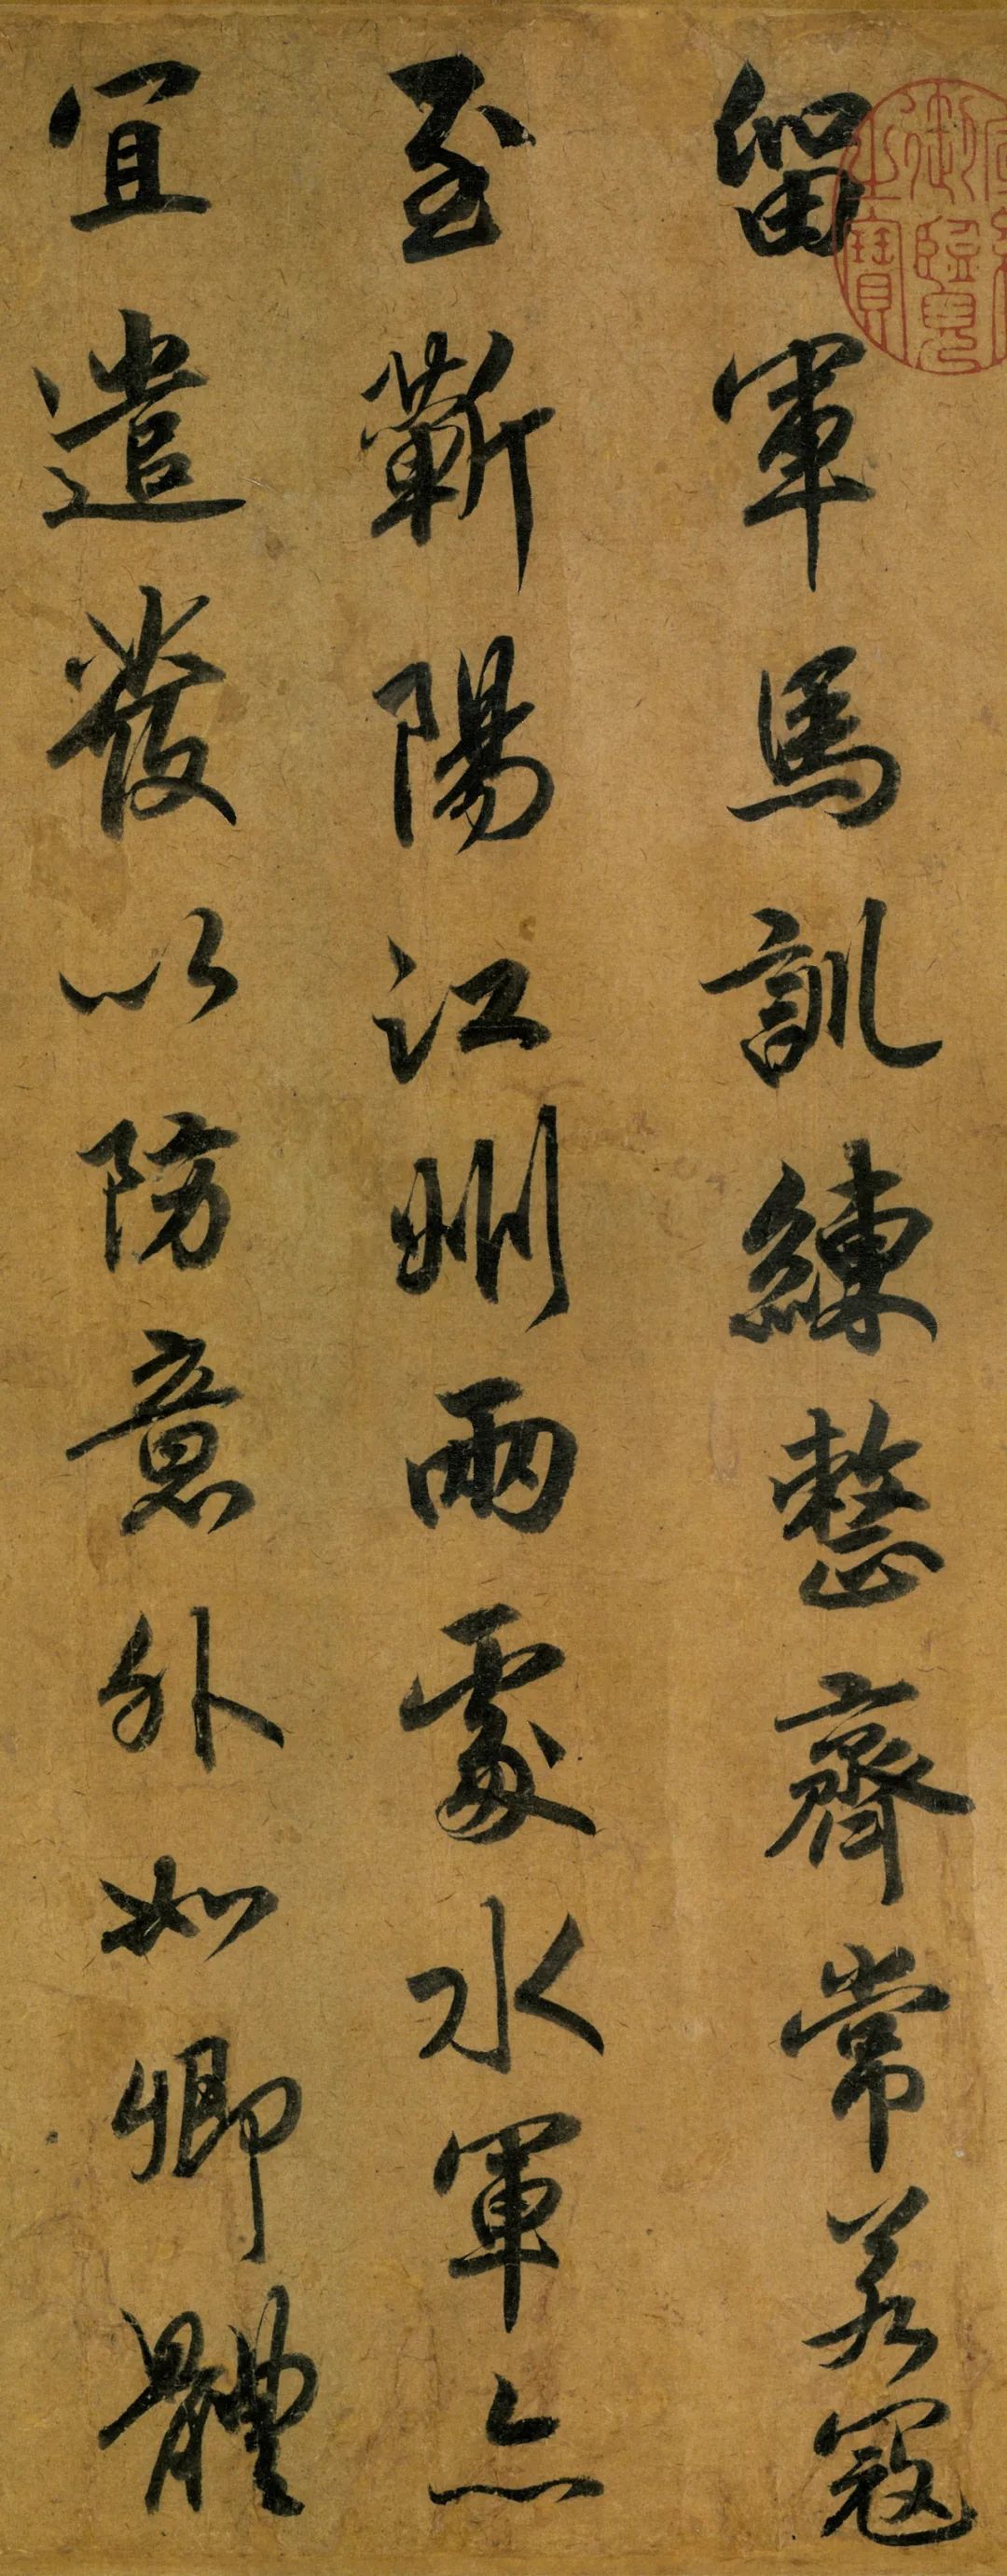 留軍馬訓練整齊常若寇
至蘄陽江州兩處水軍亦
宜遣發以防意外如卿體
御覽
之寶